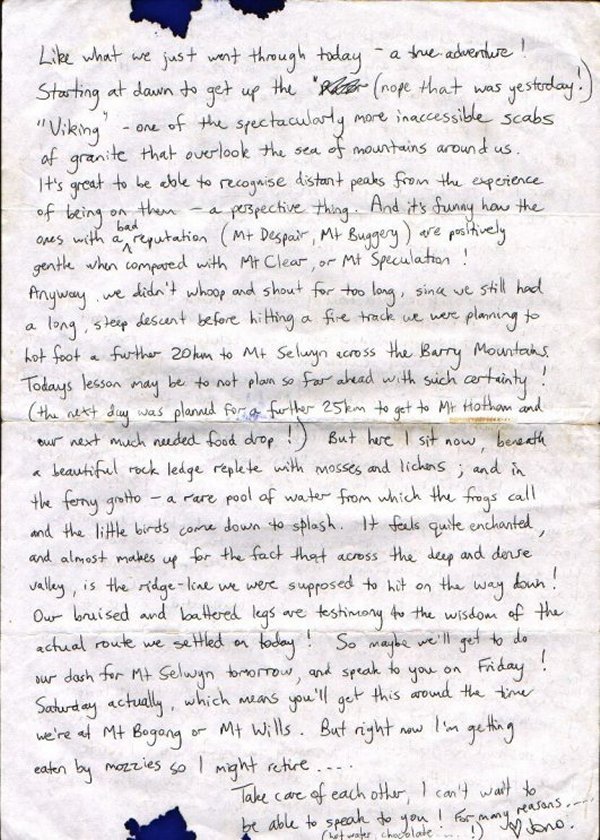 Like what we just went through today - a true adventure!
Starting at dawn to get up the " (nope that was yesterday!)
"Viking" - one of the spectacularly more inaccessible scabs
of granite that overlook the sea of mountains around us.
It's great to be able to recognise distant peaks from the experience
of being on them - a perspective thing. And it's funny how the
ones with a bad reputation (Mt Despair, Mt Buggery) are positively
gentle when compared with Mt Clear, or Mt Speculation!
Anyway, we didn't whoop and shout for too long, since we still had
a long, steep descent before hitting a fire track we were planning to
hot foot a further 20km to Mt Selwyn across the Barry Mountains.
Todays lesson may be to not plan so far ahead with such certainty!
(the next day was planned for a further 25km to get to Mt Hotham and
our next much needed food drop!) But here I sit now, beneath
a beautiful rock ledge replete with mosses and lichens; and in
the ferny grotto - a rare pool of water from which the frogs call
and the little birds come down to splash. It feels quite enchanted,
and almost makes up for the fact that across the deep and dense
valley, is the ridge-line we were supposed to hit on the way down!
Our bruised and battered legs are testimony to the wisdom of the
actual route we settled on today! So maybe we'll get to do
our dash for Mt Selwyn tomorrow, and speak to you on Friday!
Saturday actually, which means you'll get this around the time
we're at Mt Bogong or Mt Wills. But right now I'm getting
eaten by mozzies so I might retire....
Take care of each other, I can't wait to
be able to speak to you! For many reasons.....
(hot water, chocolate......!) ♡ Jono.